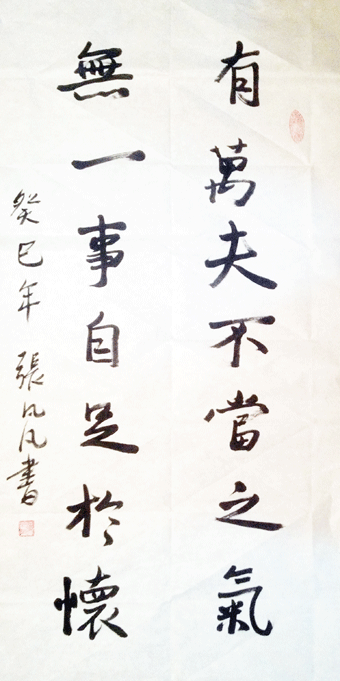 有萬夫不當之氣
無一事自足於懷
癸巳年 張凡凡書